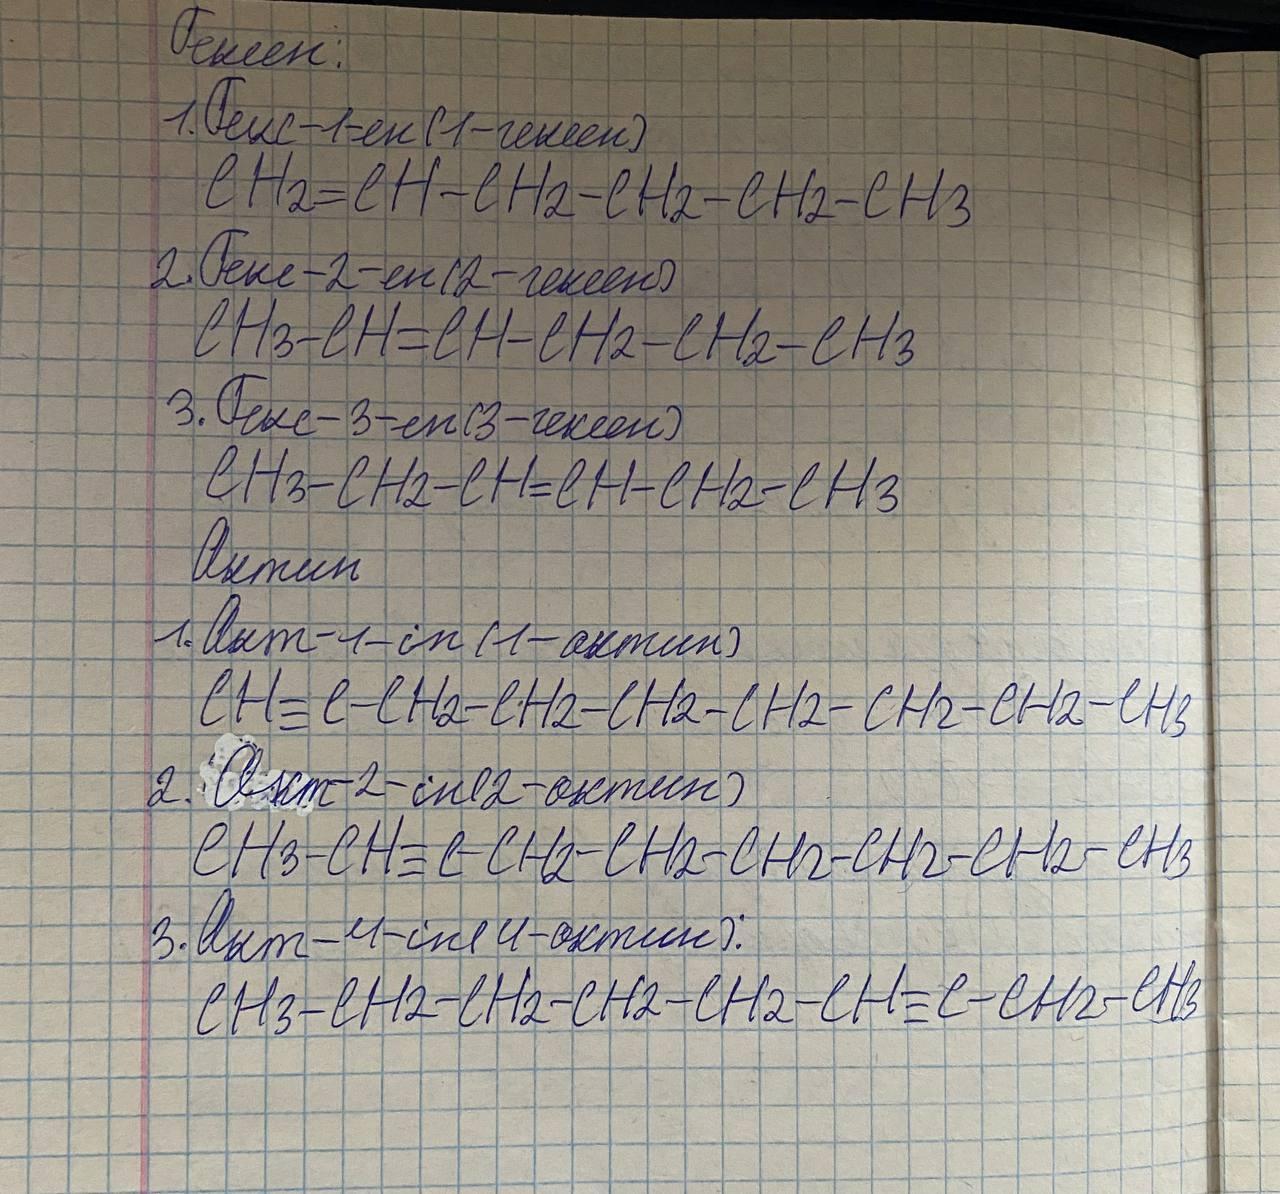 Гексен:
1. Гекс-1-ен(1-гексен)
CH2=CH-CH2-CH2-CH2-CH3
2. Гекс-2-ен(2-гексен)
CH3-CH=CH-CH2-CH2-CH3
3. Гекс-3-ен(3-гексен)
CH3-CH2-CH=CH-CH2-CH3
Октин
1. Окт-1-ін(1-октин)
CH≡C-CH2-CH2-CH2-CH2-CH2-CH2-CH3
2. Окт-2-ін(2-октин)
CH3-CH≡C-CH2-CH2-CH2-CH2-CH2-CH3
3. Окт-4-ін(4-октин):
CH3-CH2-CH2-CH2-CH2-CH≡C-CH2-CH3